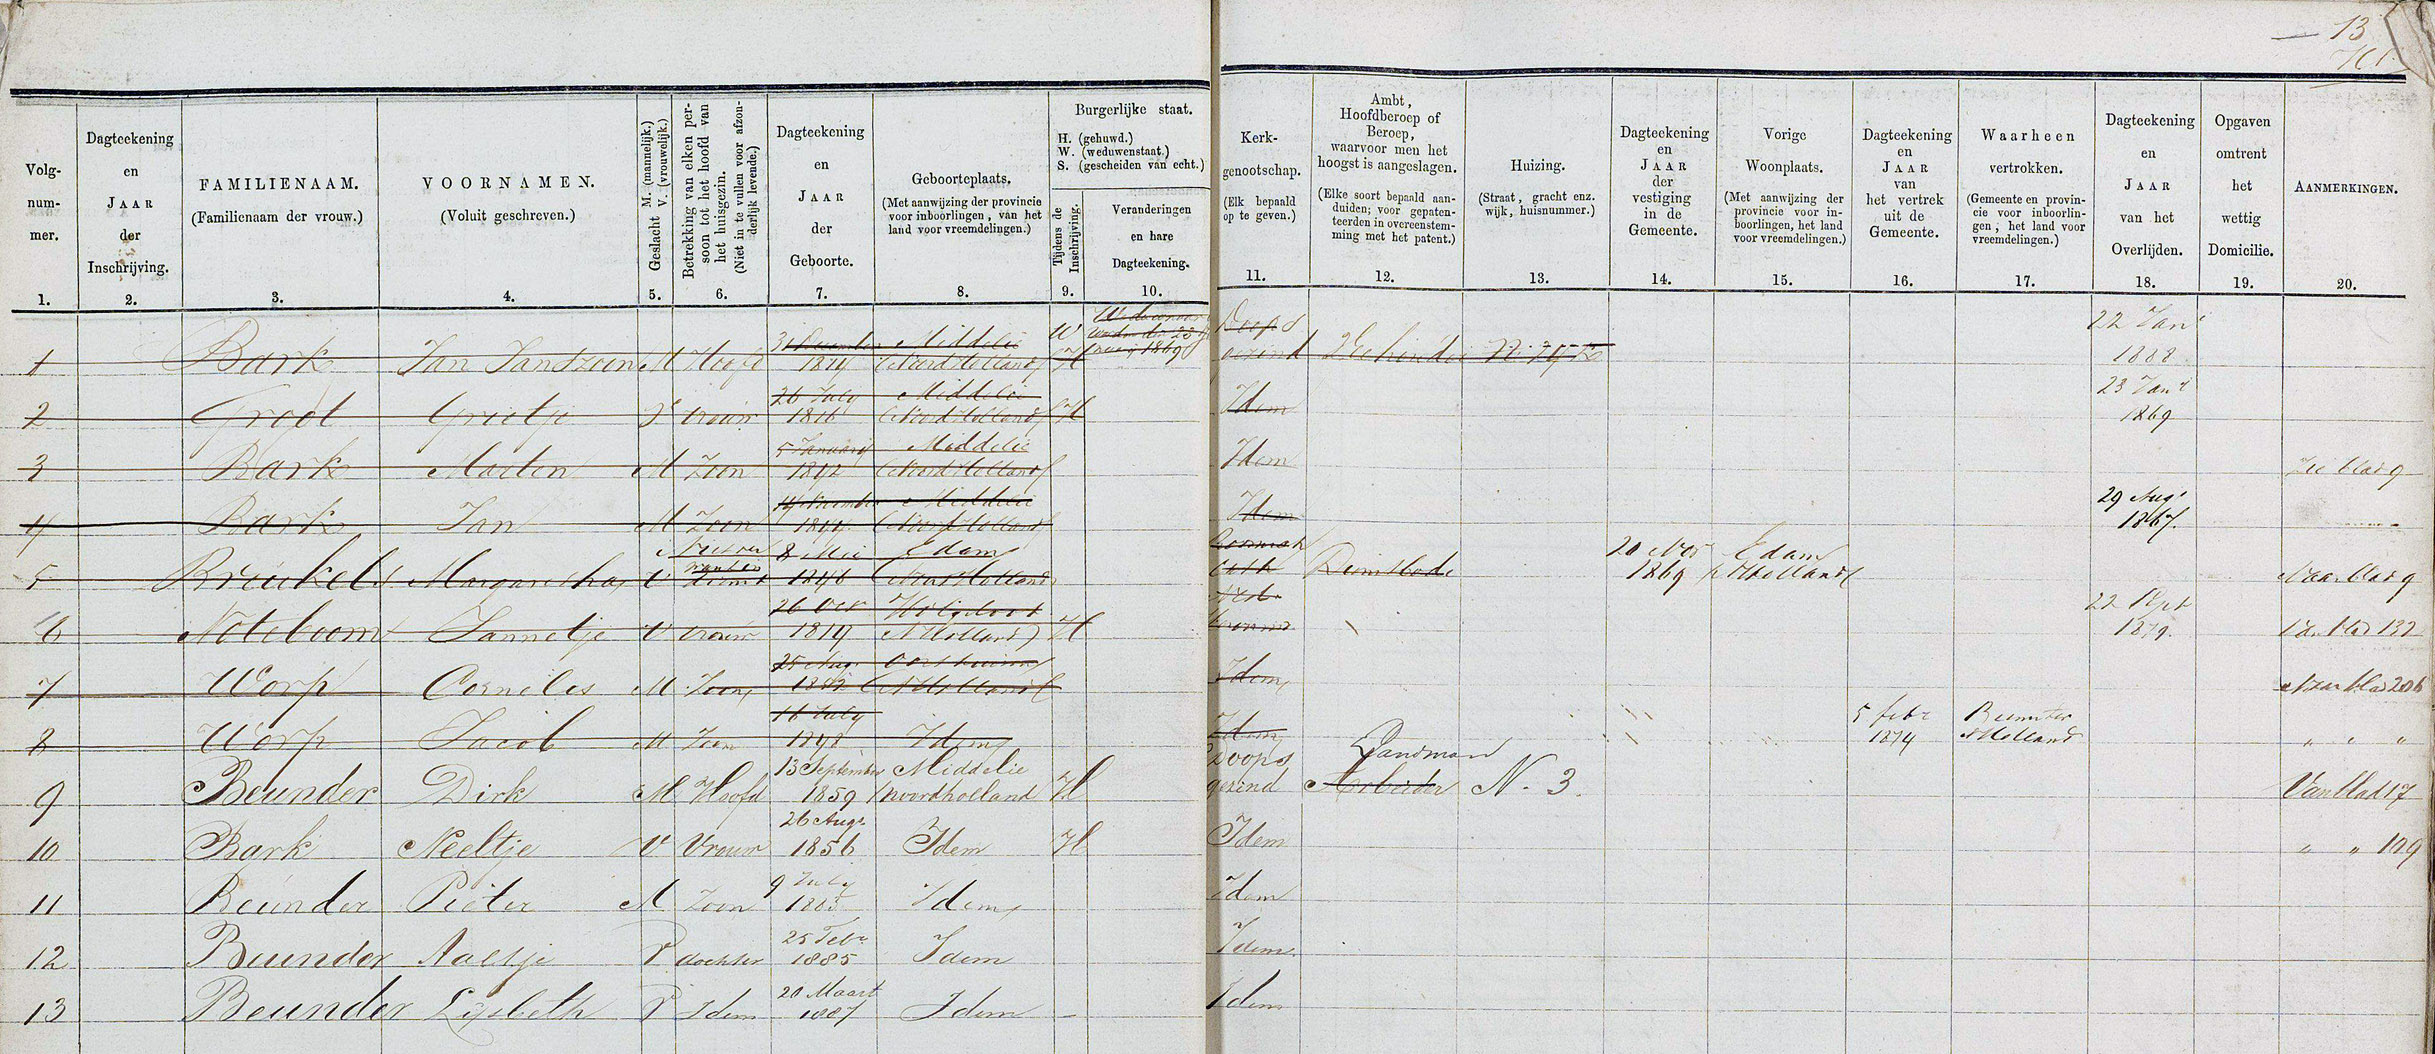 13
Volg-
num-
mer.
1.
Dagteekening
en
JAAR
der
Inschrijving.
2.
FAMILIENAAM.
(Familienaam der vrouw.)
3.
VOORNAMEN.
(Voluit geschreven.)
4.
Geslacht M. (mannelijk.)
V. (vrouwelijk.)
5.
Betrekking van elken per-
soon tot het hoofd van
het huisgezin.
(Niet in te vullen voor afzon-
derlijk levende.)
6.
Dagteekening
en
JAAR
der
Geboorte.
7.
Geboorteplaats.
(Met aanwijzing der provincie
voor inboorlingen, van het
land voor vreemdelingen.)
8.
Burgerlijke staat.
H. (gehuwd.)
W. (weduwenstaat.)
S. (gescheiden van echt.)
Tijdens de
Inschrijving.
9.
Veranderingen
en hare
Dagteekening.
10.
Kerk-
genootschap.
(Elk bepaald
op te geven.)
11.
Ambt,
Hoofdberoep of
Beroep,
waarvoor men het
hoogst is aangeslagen.
(Elke soort bepaald aan-
duiden; voor gepaten-
teerden in overeenstem-
ming met het patent.)
12.
Huizing.
(Straat, gracht enz.
wijk, huisnummer.)
13.
Dagteekening
en
JAAR
der
vestiging
in de
Gemeente.
14.
Vorige
Woonplaats.
(Met aanwijzing der
provincie voor in-
boorlingen, het land
voor vreemdelingen.)
15.
Dagteekening
en
JAAR
van
het vertrek
uit de
Gemeente.
16.
Waarheen
vertrokken.
(Gemeente en provin-
cie voor inboorlin-
gen; het land voor
vreemdelingen.)
17.
Dagteekening
en
JAAR
van het
Overlijden.
18.
Opgaven
omtrent
het
wettig
Domicilie.
19.
AANMERKINGEN.
20.
31 December Middelie W Doops 22 Jan
1 Bark Jan Jandzoon M Hoofd 1814 (Noord Holland) H gezind 1888
26 July Middelie 23 Jan
2 Groot Grietje V vrouw 1816 (Noord Holland) H Idem 1869
5 Januarij Middelie
3 Bark Maarten M Zoon 1842 (Noord Holland) Idem Zie blad 9
14 November Middelie 29 Aug
4 Bark Jan M Zoon 1844 (Noord Holland) Idem 1867.
8 Mei Edam 20 Nov Edam
5 Breukels Margaretha V dienst 1846 (Noord Holland) Cath Dienstbode 1869 N Holland Naar blad 9
26 Oct 22 Sept
6 Noteboom Jannetje V vrouw 1819 (N Holland) H 1879. Van blad 132
25 Aug. Oosthuizen
7 Worp Cornelis M Zoon (N Holland) Idem Naar blad 206
16 July 5 febr Beemster
8 Worp Jacob M Zoon 1848 Idem Idem 1874 N Holland " " "
13 September Middelie Doops Landman
9 Beunder Dirk M Hoofd 1859 Noordholland H gezind Arbeider N. 3. Van blad 17
26 Augs
10 Bark Neeltje V Vrouw 1856 Idem H Idem " " 109
9 July
11 Beunder Pieter M Zoon 1883 Idem Idem
25 Febr
12 Beunder Aaltje V dochter 1885 Idem Idem
20 Maart
13 Beunder Lijsbeth V Idem 1887 Idem Idem